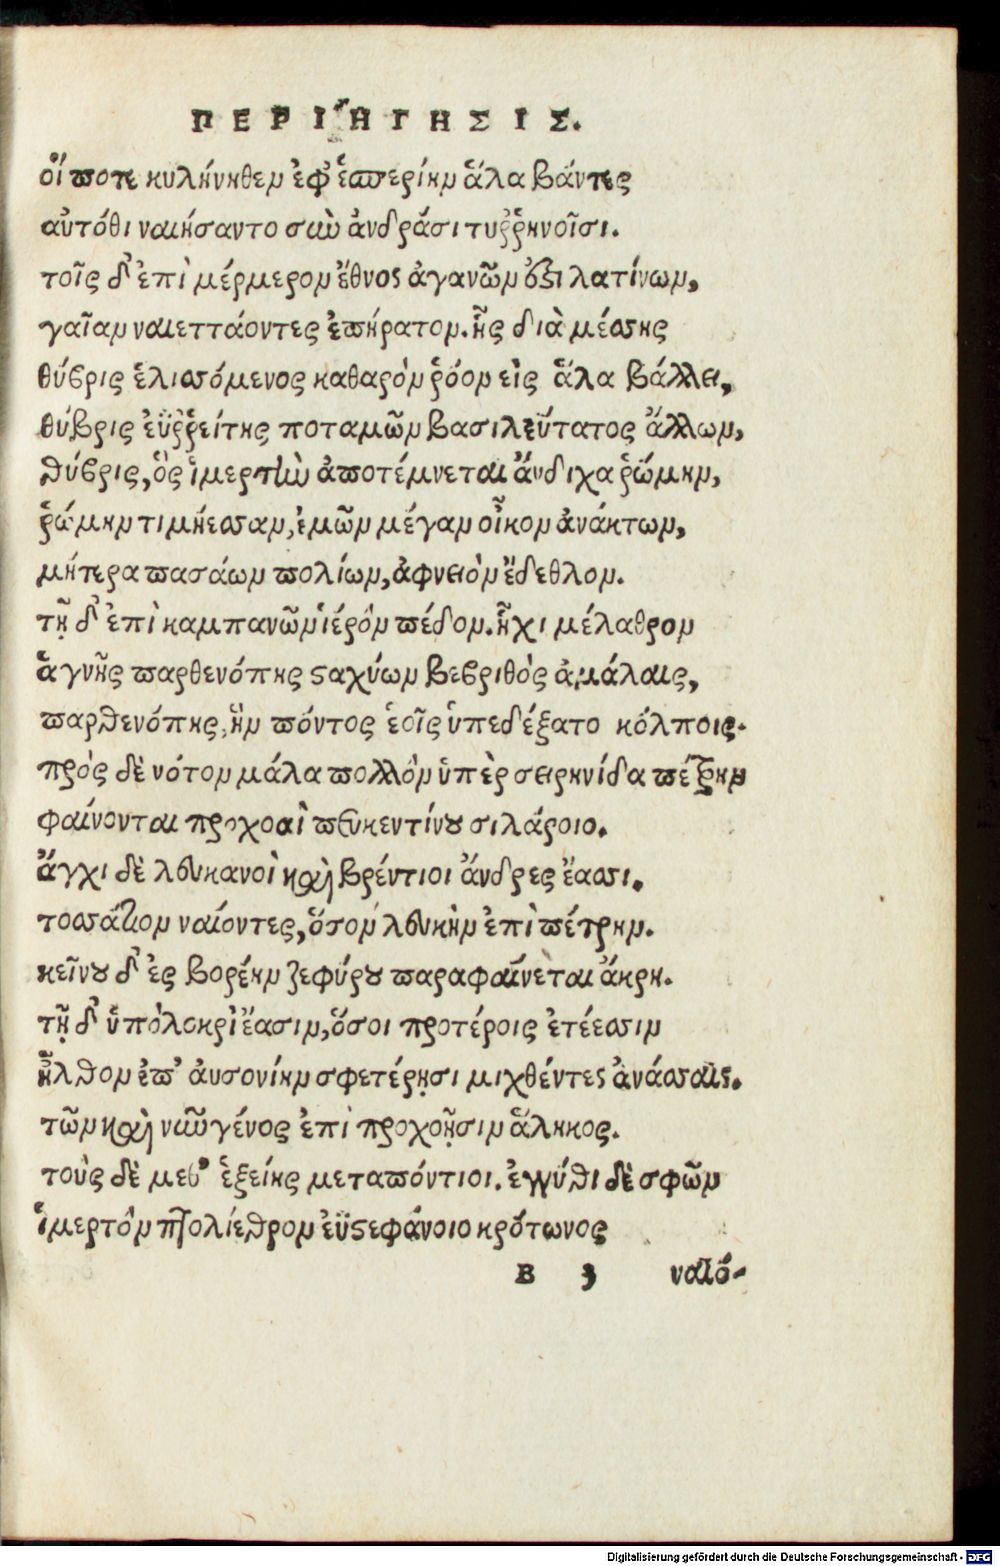 ΠΕΡΙΉΓΗΣΙΣ.
οἵ ποτε κυλήνηθεν ἐφ' ἑσπερίην ἅλα βάντες
αὐτόθι ναιήσαντο σὺν ἀνδράσι τυῤῥηνοῖσι.
τοῖς δ' ἐπὶ μέρμερον ἔθνος ἀγανῶν ὅξι λατίνων,
γαῖαν ναιεττάοντες ἐπήρατον. ἧς διὰ μέσσης
θύβρις ἑλισσόμενος καθαρὸν ῥόον εἰς ἅλα βάλλει,
θύβρις ἐϋῤῥείτης ποταμῶν βασιλεύτατος ἄλλων,
θύβρις, ὃς ἱμερτὴν ἀποτέμνεται ἄνδιχα ῥώμην,
ῥώμην τιμήεσσαν, ἐμῶν μέγαν οἶκον ἀνάκτων,
μήτερα πασάων πολίων, ἀφνειὸν ἔδεθλον.
τῇ δ' ἐπὶ καμπανῶν ἱερὸν πέδον. ἧχι μέλαθρον
ἁγνῆς παρθενόπης σταχύων βεβριθὸς ἀμάλαις,
παρθενόπης, ἣν πόντος ἑοῖς ὑπεδέξατο κόλποις.
πρὸς δὲ νότον μάλα πολλὸν ὑπὲρ σειρηνίδα πέτρην
φαίνονται προχοαὶ πευκεντίνου σιλάροιο.
ἄγχι δὲ λευκανοὶ καὶ βρέντιοι ἄνδρες ἔασσι.
τοσσάτιον ναίοντες, ὅσον λευκὴν ἐπὶ πέτρην.
κεῖνου δ' ἐς βορέην ζεφύρου παραφαίνεται ἄκρη.
τῇ δ' ὑπὸ λοκρὶ ἔασιν, ὅσοι προτέροις ἐτέεσσιν
ἦλθον ἐπ' ἀυσονίην σφετέρῃσι μιχθέντες ἀνάσσαις.
τῶν καὶ νῦν γένος ἐπὶ προχοῇσιν ἅληκος.
τοὺς δὲ μεθ' ἑξείης μεταπόντιοι. ἐγγύθι δὲ σφῶν
ἱμερτὸν πτολίεθρον ἐϋστεφάνοιο κρότωνος
B 3 ναιό-
Digitalisierung gefördert durch die Deutsche Forschungsgemeinschaft - DFG